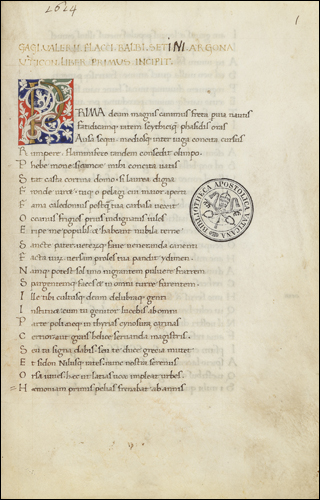 2624
1
GAGI VALERII FLACCI BALBI SETINI ARGONA
VTICON LIBER PRIMVS INCIPIT.
PRIMA deum magnis canimus freta puia nautis
Fatidicamq ratem scythiciq phasidis oras
Ausa sequi. mediosq inter iuga concita cursus
Rumpere. flammifero tandem consedit olimpo.
Phebe mone. si cumee mihi conscia uatis
Stat casta cortina domo. si laurea digna
Fronde uiret. tuq o pelagi cui maior aperti
Fama caledonius postquam tua carbasa uexit
Oceanus frigios prius indignatus iulos
Eripe me populis et habenti nubila terre
Sancte pater. ueterumq faue ueneranda canenti
Facta uirum. uersam proles tua pandit ydumen.
Namq potest. solimo nigrantem puluere fratrem
Spargentemq faces et in omni turre furentem.
Ille tibi cultusq deum delubraq genti
Instituet. cum tu genitor lucebis ab omni
Parte poli. neq in thyrias cynosura carinas
Certior aut grais helice seruanda magistris.
Seu tu signa dabis. seu te duce grecia mittet
Et sidon Nilusq rates. nunc nostra serenus
Orsa iuues. hec ut latias uox impleat urbes.
Hemoniam primis pelias frenabat ab annis
BIBLIOTHECA APOSTOLICA VATICANA